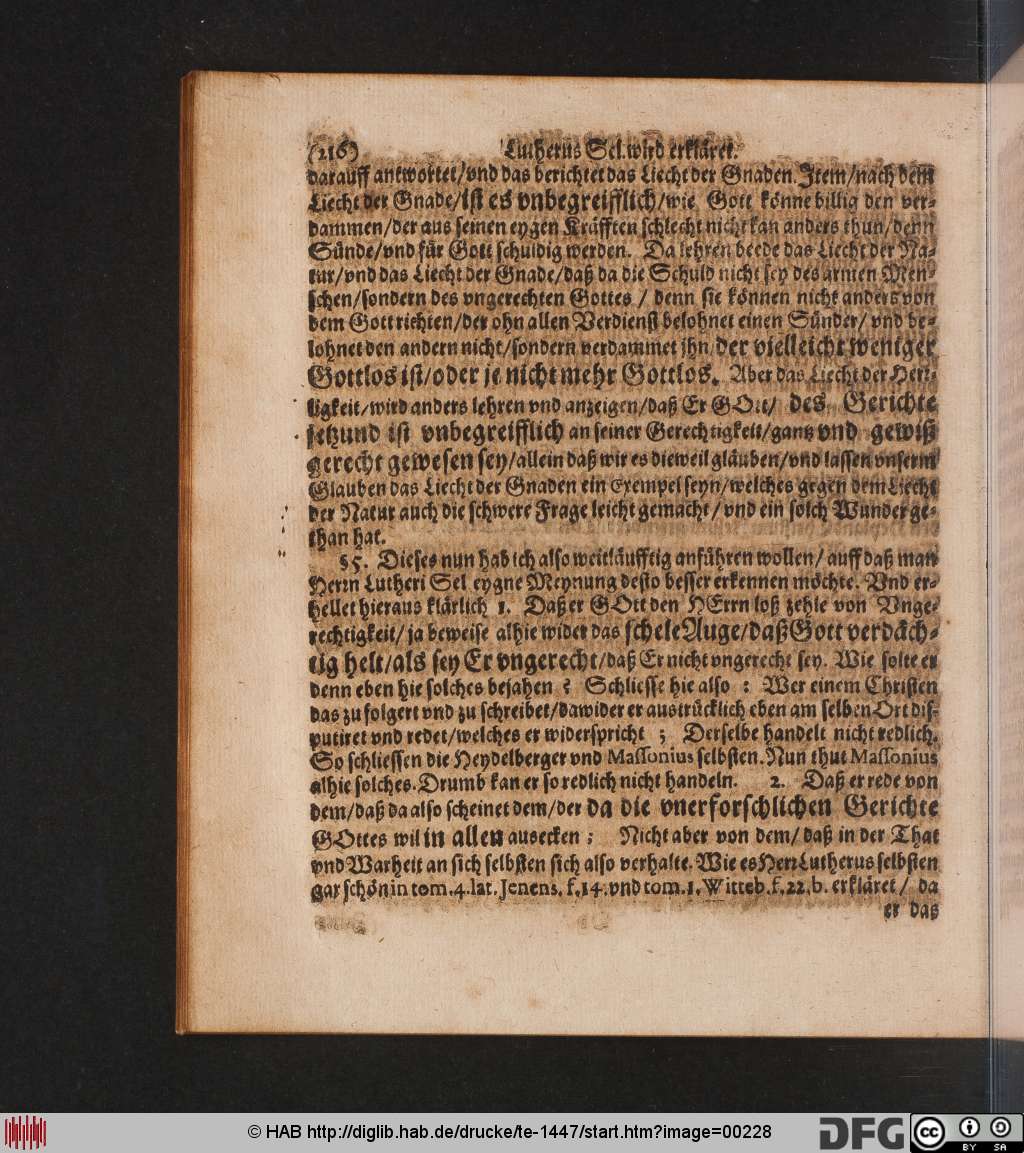 (216) Lutherus Sel. wird erkläret.
darauff antwortet/vnd das berichtet das Liecht der Gnaden. Item/nach dem
Liecht der Gnade/ist es vnbegreifflich/wie Gott könne billig den ver-
dammen/der aus seinen eygen Kräfften schlecht nicht kan anders thun/denn
Sünde/vnd für Gott schuldig werden. Da lehren beede das Liecht der Na-
tur/vnd das Liecht der Gnade/daß da die Schuld nicht sey des armen Men-
schen/sondern des vngerechten Gottes / denn sie können nicht anders von
dem Gott richten/der ohn allen Verdienst belohnet einen Sünder/ vnd be-
lohnet den andern nicht/sondern verdammet jhn/der vielleicht weniger
Gottlos ist/oder je nicht mehr Gottlos. Aber das Liecht der Herr-
ligkeit/wird anders lehren vnd anzeigen/daß Er GOtt/ des Gerichte
jetzund ist vnbegreifflich an seiner Gerechtigkeit/gantz vnd gewiß
gerecht gewesen sey/allein daß wir es dieweil gläuben/vnd lassen vnserm
Glauben das Liecht der Gnaden ein Exempel seyn/welches gegen dem Liecht
der Natur auch die schwere Frage leicht gemacht/vnd ein solch Wunder ge-
than hat.
§5. Dieses nun hab ich also weitläufftig anführen wollen/ auff daß man
Herrn Lutheri Sel eygne Meynung desto besser erkennen möchte. Vnd er-
hellet hieraus klärlich 1. Daß er GOtt den HErrn loß zehle von Vnge-
rechtigkeit/ja beweise alhie wider das schele Auge/daß Gott verdäch-
tig helt/als sey Er vngerecht/daß Er nicht vngerecht sey. Wie solte er
denn eben hie solches bejahen ? Schliesse hie also : Wer einem Christen
das zu folgert vnd zu schreibet/dawider er austrücklich eben am selben Ort dis-
putiret vnd redet/welches er widerspricht ; Derselbe handelt nicht redlich.
So schliessen die Heydelberger vnd Massonius selbsten. Nun thut Massonius
alhie solches. Drumb kan er so redlich nicht handeln. 2. Daß er rede von
dem/daß da also scheinet dem/der da die vnerforschlichen Gerichte
GOttes wil in allen ausecken ; Nicht aber von dem/ daß in der That
vnd Warheit an sich selbsten sich also verhalte. Wie es Herr Lutherus selbsten
gar schön in tom.4.lat. Jenens. f.14. vnd tom.1. Witteb. f.22.b. erkläret/ da
er das
© HAB http://diglib.hab.de/drucke/te-1447/start.htm?image=00228
DFG
cc
BY SA